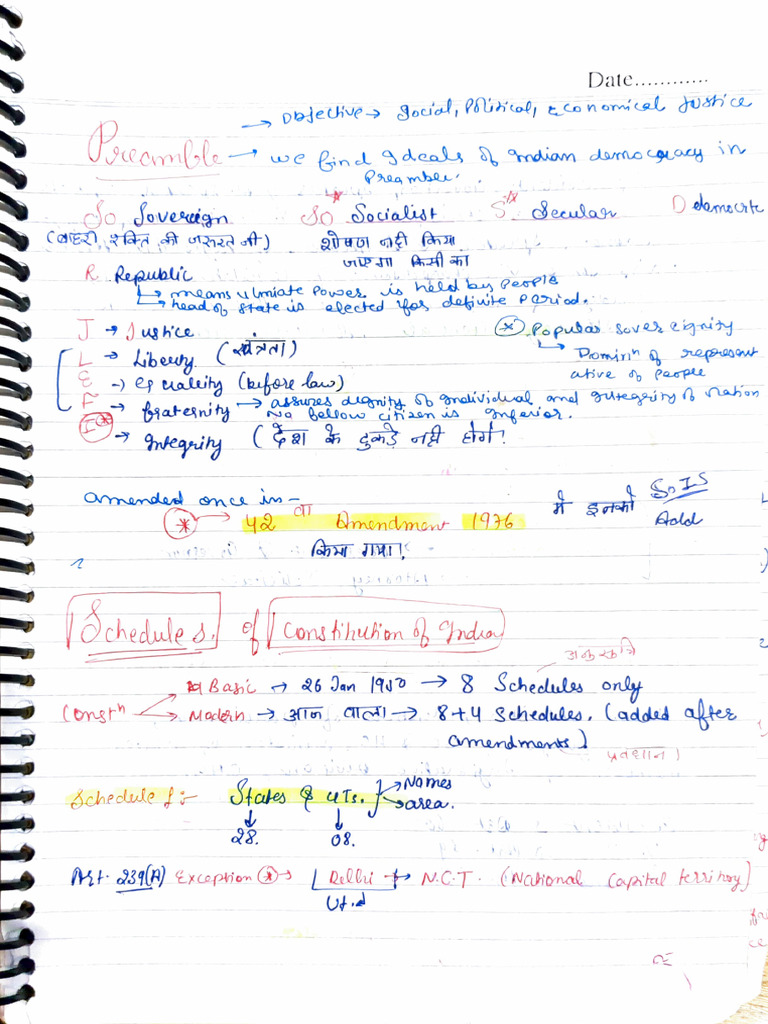 Date............
→ Objective → Social, Political, Economical Justice
Preamble → we find Ideals of Indian democracy in
Preamble.
So Sovereign So* Socialist S* Secular D democrate
(बाहरी शक्ति की जरूरत नी) शोषण नही किया
जाएगा किसी का
R Republic
→ means ulmiate power is held by people
→ head of state is elected for definite period.
J → Justice
* Popular sovereignity
L → Liberty (स्वंत्रता)
→ Dominn of represent
ative of people
E → Equaleity (before law)
F → fraternity → assures dignity of Individual and Integrity of Nation
No bellow citizen is Inferior.
I* → Integrity (देश के टुकड़े नही होगे!
amended once in -
* → 42 वा Amendment 1976 मे इनको SoIS Add
किया गया!
Schedules. of Constitution of India
अनुसूचि
Constn → Basic → 26 Jan 1950 → 8 Schedules only
→ Modern → आज वाला → 8+4 Schedules. (added after
amendments)
Schedule 1:- States & UTs. } → Names
→ area.
28. 08.
Art. 239(A) Exception * → Delhi → N.C.T. (National Capital territory)